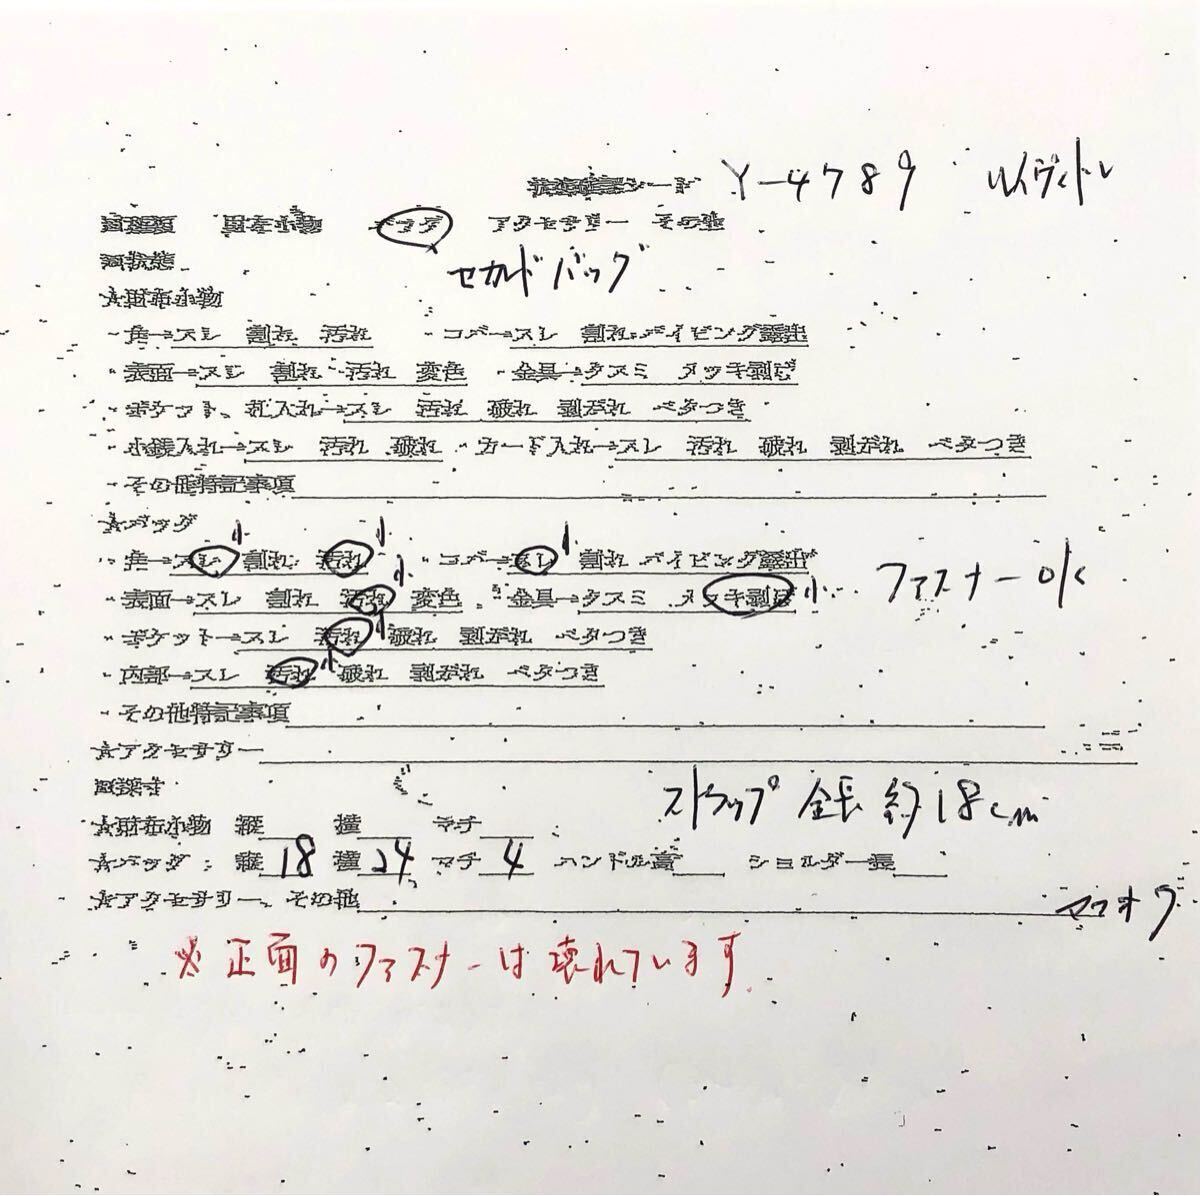 状態確認シート Y-4789 ルイヴィトン
財布小物 バッグ アクセサリー その他
セカンドバッグ
☆財布小物
・角→スレ 割れ 汚れ ・コバ→スレ 割れ パイピング露出
・表面→スレ 割れ 汚れ 変色 ・金具→クスミ メッキ剥げ
・ポケット、札入れ→スレ 汚れ 破れ 剥がれ ベタつき
・小銭入れ→スレ 汚れ 破れ ・カード入れ→スレ 汚れ 破れ 剥がれ ベタつき
・その他特記事項
☆バッグ
・角→スレ 小 割れ 汚れ 小 ・コバ→スレ 小 割れ パイピング露出
・表面→スレ 割れ 汚れ 小 変色 ・金具→クスミ メッキ剥げ 小 ファスナーOK
・ポケット→スレ 汚れ 小 破れ 剥がれ ベタつき
・内部→スレ 汚れ 小 破れ 剥がれ ベタつき
・その他特記事項
☆アクセサリー
ストラップ 全長 約18cm
☆財布小物 縦 横 マチ
☆バッグ:縦 18 横 24 マチ 4 ハンドル高 ショルダー長
☆アクセサリー、その他
※正面のファスナーは壊れています